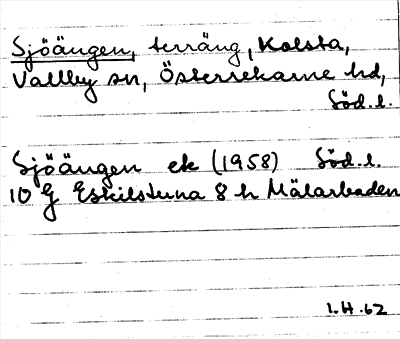 Sjöängen, terräng, Kolsta,
Vallby sn, Österrekarne hd,
Söd.l.
Sjöängen ek (1958) Söd.l.
10 G Eskilstuna 8 h Mälarbaden
I.H.62